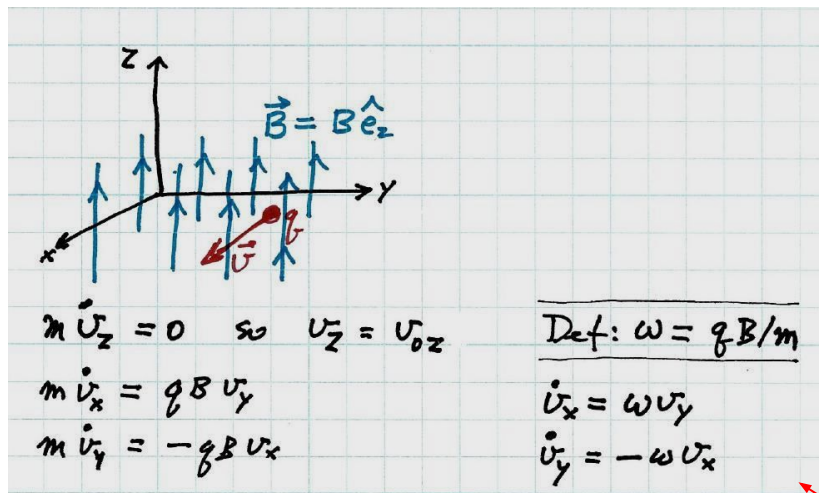 Z
B⃗ = B ê_z
Y
q
x
v⃗
m v̇_z = 0 so v_z = v_{oz}
m v̇_x = q B v_y
m v̇_y = −q B v_x
Def: ω = qB/m
v̇_x = ω v_y
v̇_y = −ω v_x